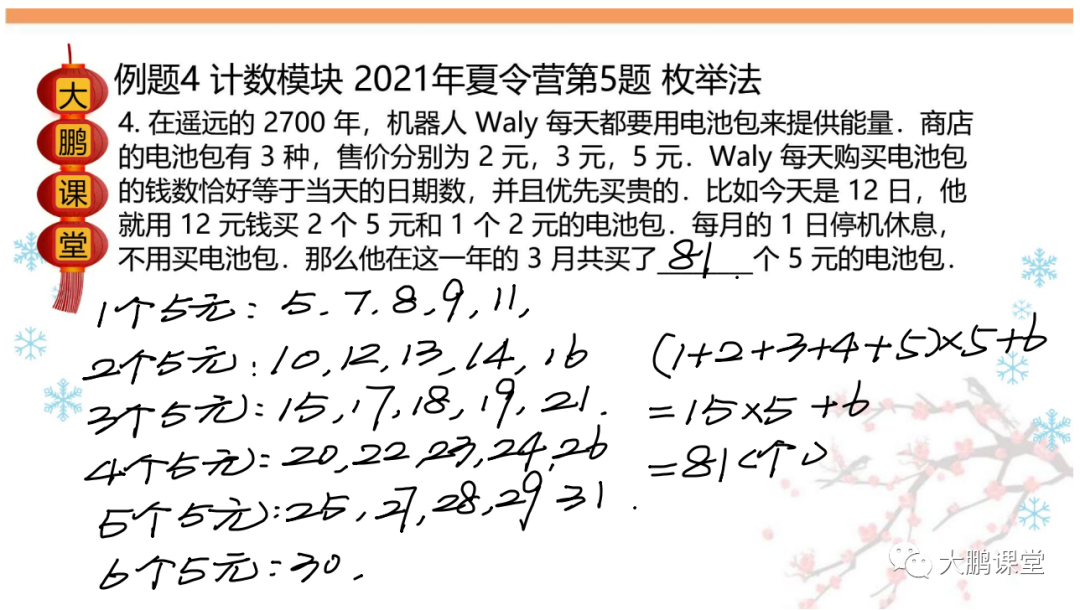 大鹏课堂
例题4 计数模块 2021年夏令营第5题 枚举法
4. 在遥远的 2700 年，机器人 Waly 每天都要用电池包来提供能量．商店
的电池包有 3 种，售价分别为 2 元，3 元，5 元．Waly 每天购买电池包
的钱数恰好等于当天的日期数，并且优先买贵的．比如今天是 12 日，他
就用 12 元钱买 2 个 5 元和 1 个 2 元的电池包．每月的 1 日停机休息，
不用买电池包．那么他在这一年的 3 月共买了 81 个 5 元的电池包．
1个5元：5.7.8,9,11,
2个5元:10,12,13,14,16
3个5元:15,17,18,19,21.
4个5元:20,22,23,24,26
5个5元:25,27,28,29 31.
6个5元:30.
(1+2+3+4+5)×5+6
=15×5+6
=81(个)
大鹏课堂